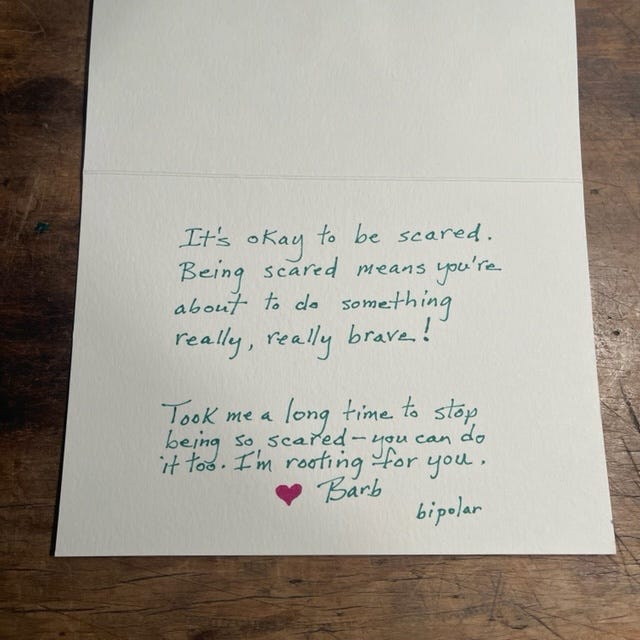 It's okay to be scared.
Being scared means you're
about to do something
really, really brave!
Took me a long time to stop
being so scared – you can do
it too. I'm rooting for you.
♥ Barb
bipolar